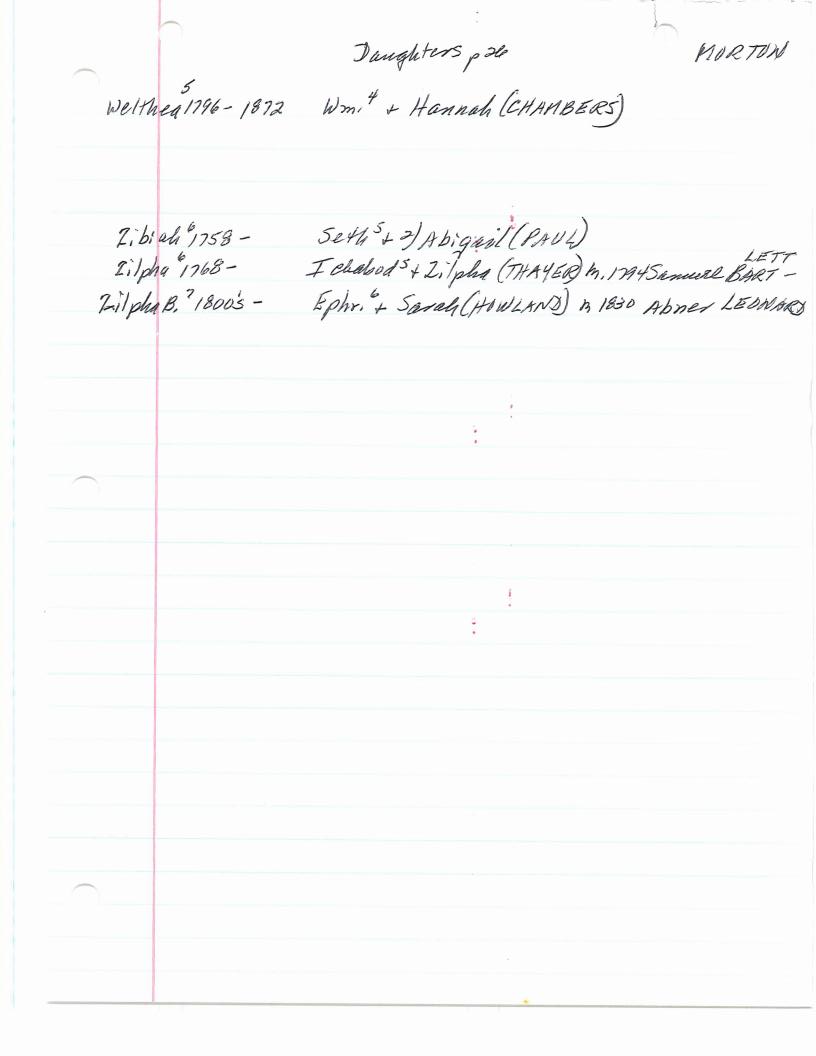 Daughters p 26 MORTON
Welthea⁵ 1796 - 1872 Wm.⁴ + Hannah (CHAMBERS)
Zibiah⁶ 1758 - Seth⁵ + 2) Abigail (PAUL)
Zilpha⁶ 1768 - Ichabod⁵ + Zilpha (THAYER) m. 1794 Samuel BART-
LETT
Zilpha B.⁷ 1800's - Ephr.⁶ + Sarah (HOWLAND) m 1830 Abner LEONARD